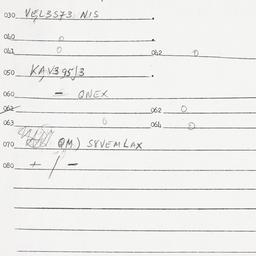 030 VEL3S73 NIS
040 0
041 0 042 0
050 KAV395/3
060 — QNEX
061 062 0
063 0 064 0
070 QM) SYVEMLAX
080 + / —